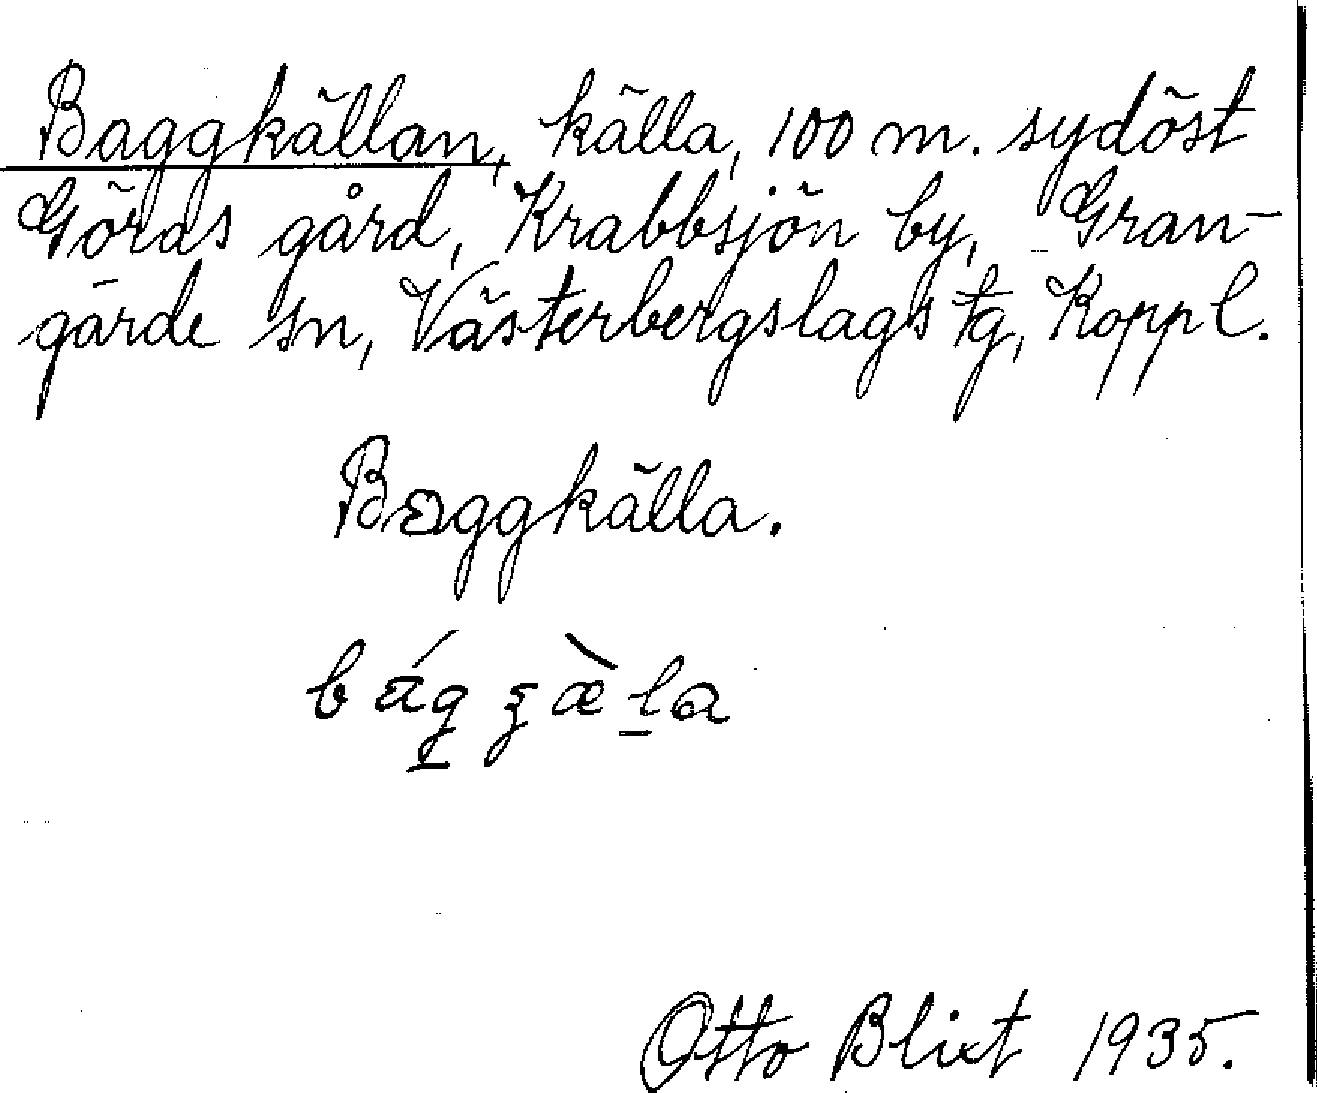 Baggkällan, källa, 100 m. sydöst
Göras gård, Krabbsjön by, Gran-
gärde sn, Västerbergslags tg, Koppl.
Baggkälla.
Otto Blixt 1935.